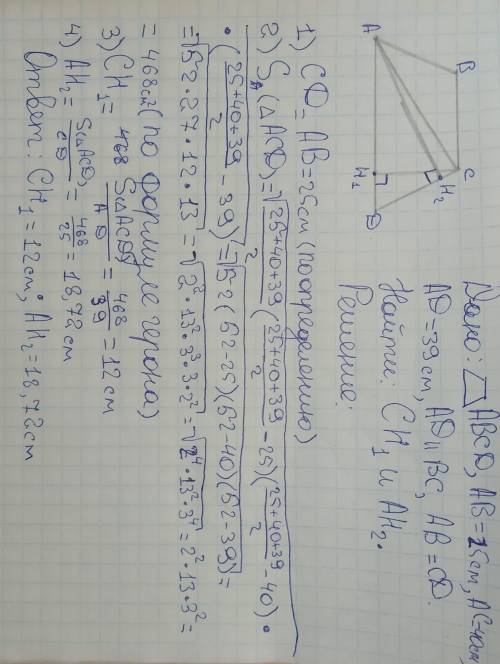 Дано: ABCD, AB=25см, AC=40см
AD=39см, AD∥BC, AB=CD.
Найти: CH₁ и AH₂.
Решение:
B
C
A
H₂
H₁
D
1) CD=AB=25см (по определению)
2) S (△ACD)=√(25+40+39)/2 ((25+40+39)/2 -25)((25+40+39)/2 -40)·
·((25+40+39)/2 -39)=√52(52-25)(52-40)(52-39)=
=√52·27·12·13=√2²·13²·3³·3·2²=√2⁴·13²·3⁴=2²·13·3²=
=468см (по формуле герона)
3) CH₁= 468 S(△ACD)/AD = 468/39 =12см
4) AH₂= S(△ACD)/CD = 468/25 =18,72см
Ответ: CH₁=12см; AH₂=18,72см